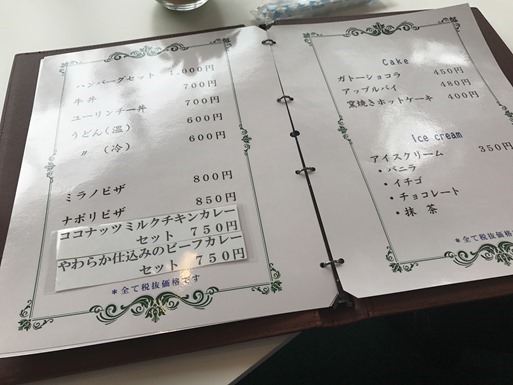 ハンバーグセット 1,000円
牛丼 700円
ユーリンチー丼 700円
うどん(温) 600円
〃 (冷) 600円
ミラノピザ 800円
ナポリピザ 850円
ココナッツミルクチキンカレー
セット 750円
やわらか仕込みのビーフカレー
セット 750円
*全て税抜価格です
Cake
ガトーショコラ 450円
アップルパイ 480円
窯焼きホットケーキ 400円
Ice cream
アイスクリーム 350円
・バニラ
・イチゴ
・チョコレート
・抹 茶
*全て税抜価格です